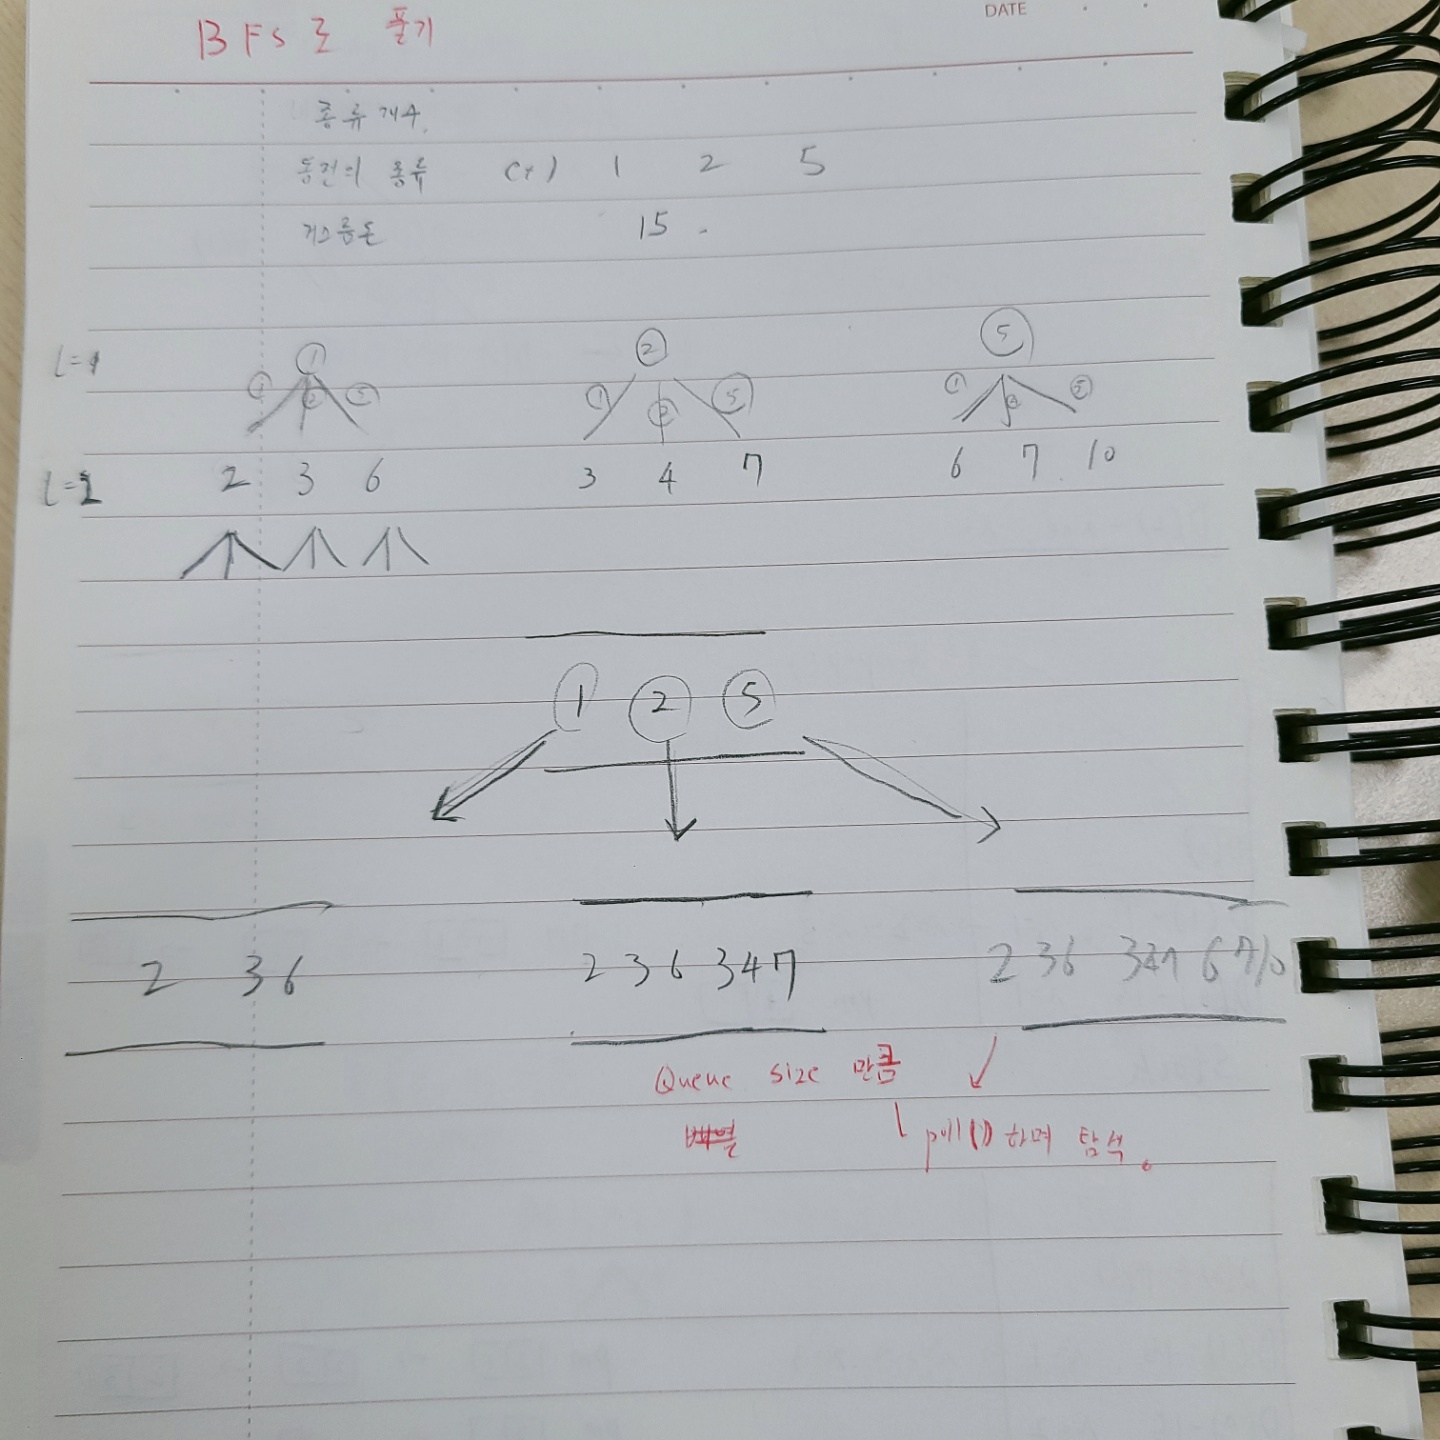 DATE
BFS로 풀기
종류 개수.
동전의 종류 (+) 1 2 5
거스름돈 15 .
1 2 5
L=1
1 2 5 1 2 5 1 2 5
L=2 2 3 6 3 4 7 6 7 10
1 2 5
2 3 6 2 3 6 3 4 7 2 3 6 3 4 7 6 7 10
Queue size 만큼
poll() 하며 탐색.